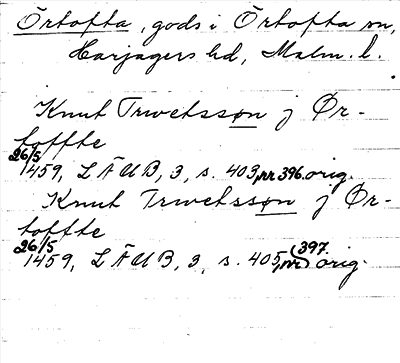 Örtofta, gods i Örtofta sn,
Harjagers hd, Malm. l.
Knut Trwetssøn j Ør-
toffte
26/5 1459, LÄUB, 3, s. 403, nr 396. orig.
Knut Trwetssøn j Ør-
toffte
26/5 1459, LÄUB, 3, s. 405, nr 397. orig.